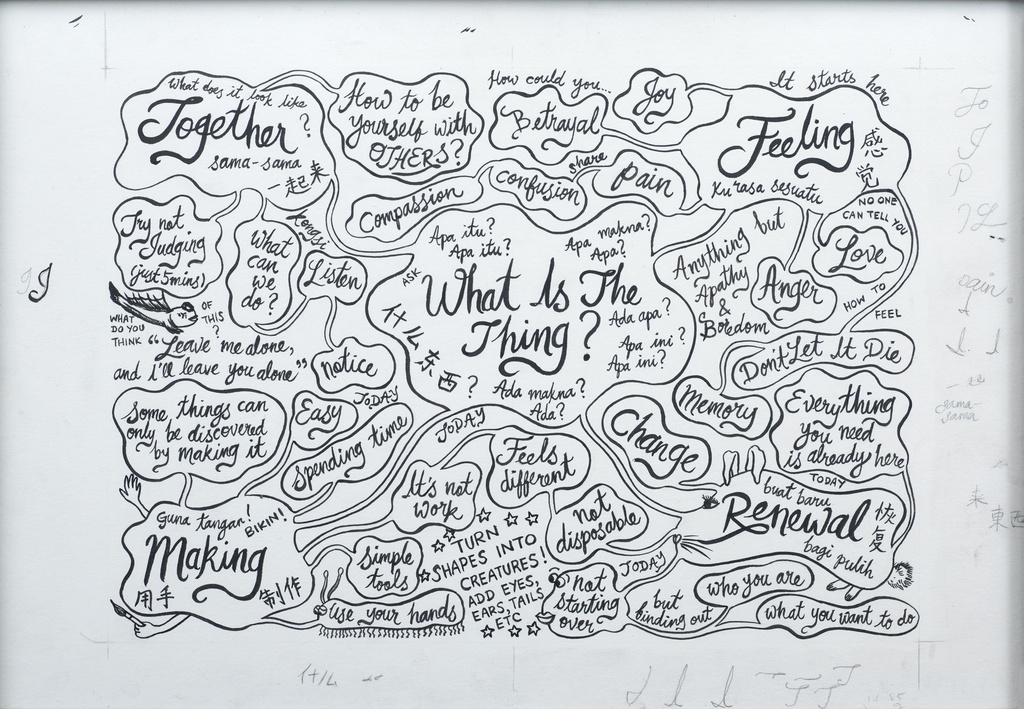 What does it look like
Together?
sama-sama
一起来
How to be
yourself with
OTHERS?
How could you...
Betrayal
Joy
It starts here
Feeling
感
觉
Ku rasa sesuatu
Compassion
confusion
share
Pain
NO ONE
CAN TELL YOU
Love
HOW TO
FEEL
Try not
Judging
(just 5mins)
What
can
we
do?
Kongsi
Listen
ASK
Apa itu?
Apa itu?
Apa makna?
Apa?
What Is The
Thing?
什么东西?
Ada apa?
Apa ini?
Apa ini?
Ada makna?
Ada?
Anything but
Apathy
&
Boredom
Anger
WHAT
DO YOU
THINK
OF
THIS
?
"Leave me alone,
and i'll leave you alone"
notice
Don't Let It Die
Memory
Change
Everything
you need
is already here
Some things can
only be discovered
by making it
Easy
TODAY
Spending time
TODAY
Feels
different
It's not
work
not
disposable
TODAY
buat baru
Renewal
恢
复
bagi pulih
Guna tangan!
BIKIN!
Making
用手
制作
simple
tools
use your hands
TURN
SHAPES INTO
CREATURES!
ADD EYES,
EARS, TAILS
ETC
TODAY
not
starting
over
but
finding out
who you are
what you want to do
J
To
J
P
pain
一起
sama-
sama
来
東西
什么